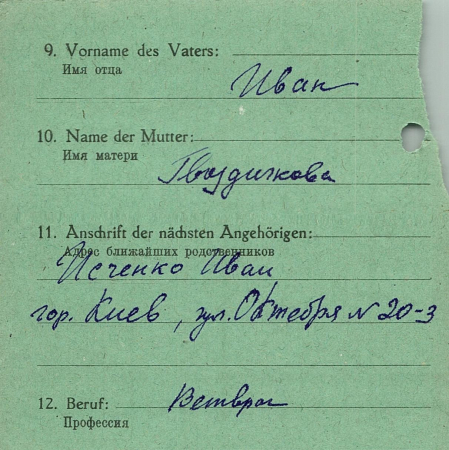 9. Vorname des Vaters:
Имя отца
Иван
10. Name der Mutter:
Имя матери
Гвоздичкова
11. Anschrift der nächsten Angehörigen:
Адрес ближайших родственников
Исченко Иван
гор. Киев, ул. Октября N 20-3
12. Beruf: Ветврач
Профессия